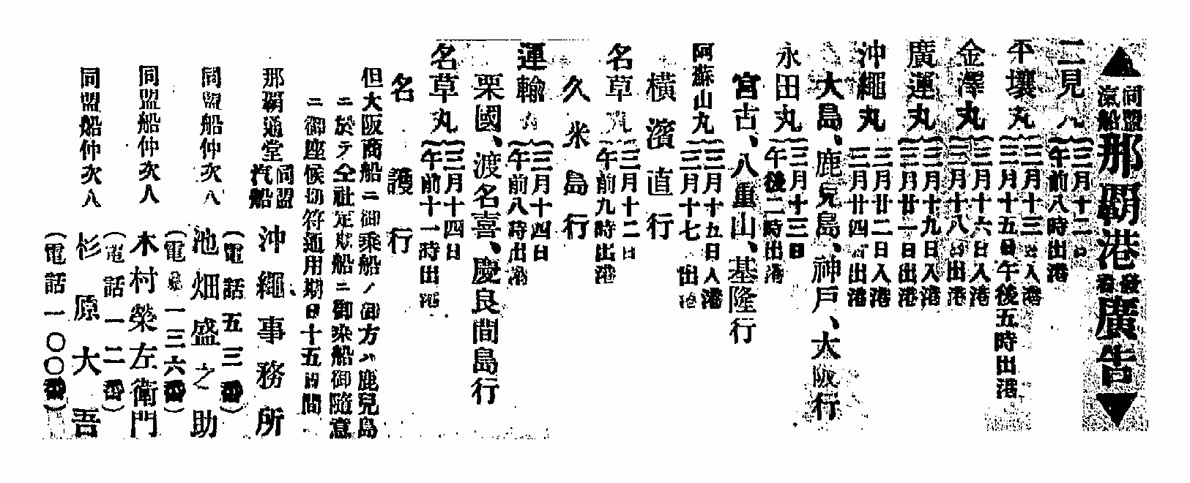 ▲同盟汽船那覇港發着廣告▼
二見丸
三月十二日
午前八時出港
平壤丸
三月十三日入港
三月十五日午後五時出港
金澤丸
三月十六日入港
三月十八日出港
廣運丸
三月十九日入港
三月廿一日出港
沖繩丸
三月廿二日入港
三月廿四日出港
大島、鹿兒島、神戸、大阪行
永田丸
三月十三日
午後二時出港
宮古、八重山、基隆行
阿蘇山丸
三月十五日入港
三月十七 出港
横濱直行
名草丸
三月十二日
午前九時出港
久米島行
運輸丸
三月十四日
午前八時出港
粟國、渡名喜、慶良間島行
名草丸
三月十四日
午前十一時出港
名護行
但大阪商船ニ御乘船ノ御方ハ鹿兒島
ニ於テ仝社定期船ニ御乘船御隨意
ニ御座候切符通用期日十五日間
那覇通堂 同盟汽船 沖繩事務所
(電話五三番)
同盟船仲次人 池畑盛之助
(電話一三六番)
同盟船仲次人 木村榮左衛門
(電話一二番)
同盟船仲次人 杉原大吾
(電話一〇〇番)